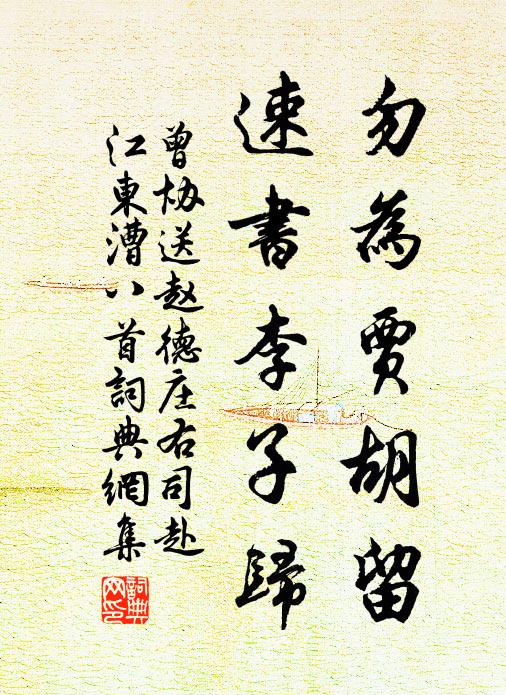 勿為賈胡留
速書李子歸
曾協送赵德庄右司赴
江東漕八首詞典網集
詞典
网印